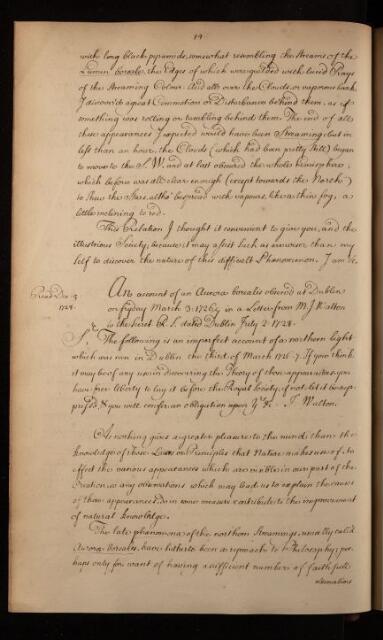 19
with long black pyramids, somewhat resembling the Streams of the
Lumen boreale, the Edges of which were guilded with lucid Rays
of the Streaming Colour: And all over the Clouds or vaporous bank
I discover'd a great Commotion or Disturbance behind them, as if
something was rolling or tumbling behind them. The end of all
these appearances I expected would have been Streaming; but in
less than an hour, the Clouds (which had been pretty still) began
to move to the S.W. and at last obscured the whole hemisphere,
which before was all clear enough (except towards the North)
to shew the Stars, altho' bespread with vapours, like a thin fog, a
little inclining to red.
This Relation I thought it convenient to give you, and the
illustrious Society, because it may assist such as are wiser than my
self to discover the nature of this difficult Phænomenon. I am &c.
An account of an Aurora borealis observed at Dublin
on fryday March 3. 1726/7 in a Letter from M. J. Walton
to the Secret. R. S. dated Dublin July 2. 1728.
Read Dec. 5.
1728.
Sr. The following is an imperfect account of a northern light
which was seen in Dublin the third of March 1726-7. If you think
it may be of any use in discovering the Theory of those appearances you
have free Liberty to lay it before the Royal Society, if not let it be sup
press'd, & you will confer an obligation upon Yrs. &c. J. Walton.
As nothing gives a greater pleasure to the mind than the
knowledge of those Laws or Principles that Nature makes use of to
effect the various appearances which are visible in our part of the
Creation so any observations which may lead us to explain the causes
of those appearances do in some measure contribute to the improvement
of natural knowledge.
The late phænomena of the northern streamings, usually called
Aurora borealis, have hitherto been a reproach to Philosophy; per
haps only for want of having a sufficient number of faithfull